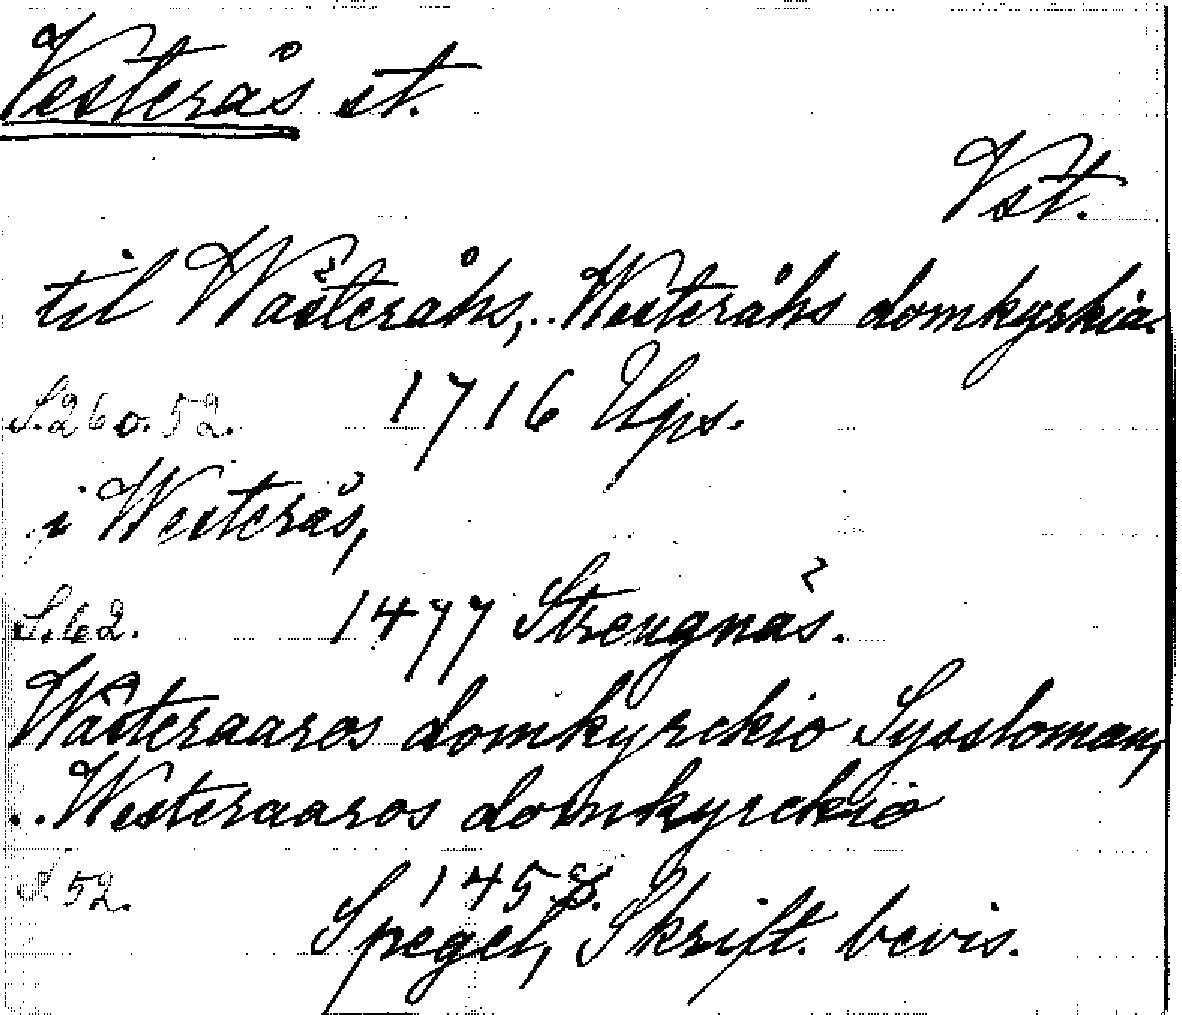 Vesterås st.
Vst.
til Wästeråhs,.. Westeråhs domkyrkia.
S. 26 o. 52. 1716 Ups.
i Westerås,
S. 62. 1477 Strengnäs.
Wästeraaros domkyrckio Syssloman,
.. Westeraaros domkyrckio
S. 52. 1458.
Spegel, Skrift. bevis.